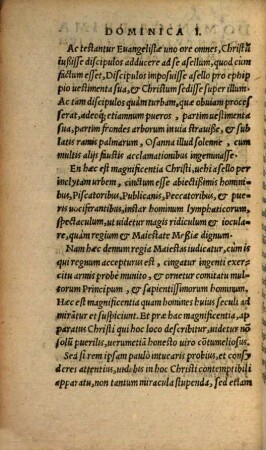 DOMINICA I.
Ac testantur Euangelistæ uno ore omnes, Christũ
iußisse discipulos adducere ad se asellum, quod cum
factum esset, Discipulos imposuisse asello pro ephip
pio uestimenta sua, & Christum sedisse super illum.
Ac tam discipulos quàm turbam, quæ obuiam proceſſ
serat, adeoq; etiamnum pueros, partim uestimenta
sua, partim frondes arborum in uia strauisse, & sub
latis ramis palmarum, Osanna illud solenne, cum
multis alijs faustis acclamationibus ingeminasse.
En hæc est magnificentia Christi, uehi asello per
inclytam urbem, cinctum esse abiectißimis homini
bus, Piscatoribus, Publicanis, Peccatoribus, & pu
eris uociferantibus, instar hominum lymphaticorum,
spectaculum, ut uidetur magis ridiculum & iocula
re, quàm regium & Maiestate Meßiæ dignum.
Nam hæc demum regia Maiestas iudicatur, cum is
qui regnum accepturus est, cingitur ingenti exerci
citu armis probe munito, & ornetur comitatu mul
torum Principum, & sapientißimorum hominum,
Hæc est magnificentia quam homines huius seculi ad
mirãtur et suspiciunt. Et præ hac magnificentia, ap
paratus Christi qui hoc loco describitur, uidetur nõ
solũ puerilis, uerumetiã honesto uiro cõtumeliosus.
Sed si rem ipsam paulò intuearis probius, et consy
deres attentius, uidebis in hoc Christi contemptibili
apparatu, non tantum miracula stupenda, sed etiam